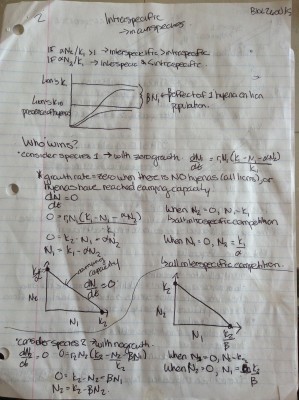 2
Intraspecific
→ in own species
If αN2/K1 >1 → interspecific > intraspecific
If αN2/K1 → interspecific < intraspecific
Lion's K
Lion's K in
presence of hyena
BN1 → effect of 1 hyena on lion
population.
Who wins?
*consider species 1 → with zero growth. dN1/dt = r1N1(K1-N1-αN2)/K1
* growth rate = zero when there is NO hyenas (all lions), or
hyenas have reached carrying capacity
dN/dt = 0
When N2=0, N1=K1
0 = r1N1(K1-N1-αN2)/K1
↳ all intraspecific competition
0 = K1-N1-αN2
N1 = K1-αN2
When N1=0, N2=K1/α
↳ all interspecific competition.
carrying
capacity
dN/dt = 0
N2
N1
K2
N2
N1
K2/B
*consider species 2 → with no growth.
dN2/dt = 0 0=r2N2(K2-N2-BN1)/K2
When N1=0, N2=K2
0=K2-N2-BN1
N2=K2-BN1
When N2=0, N1=K2/B